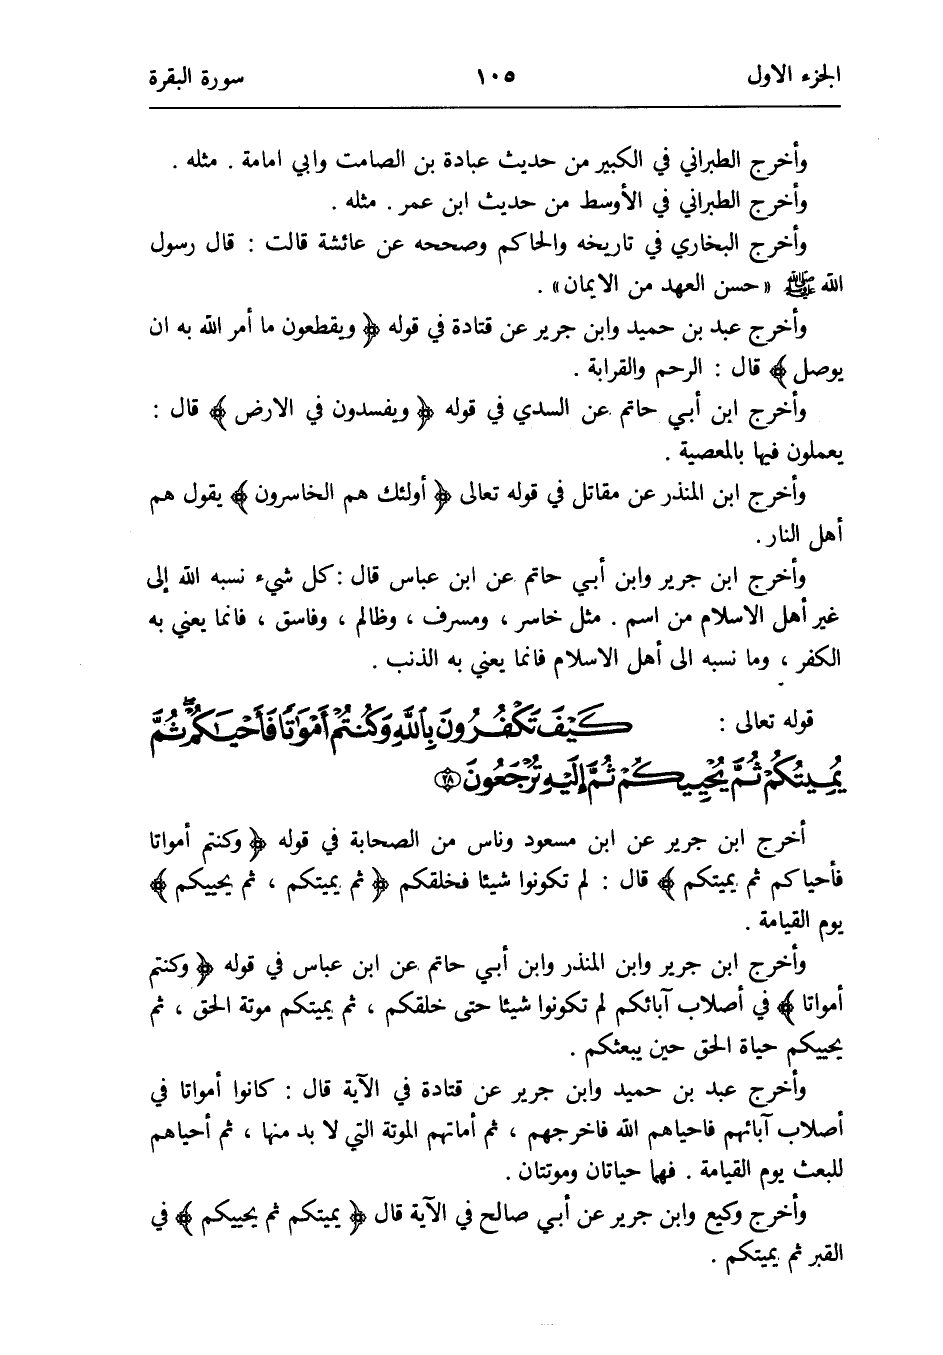 الجزء الاول ١٠٥ سورة البقرة
وأخرج الطبراني في الكبير من حديث عبادة بن الصامت وابي امامة . مثله .
وأخرج الطبراني في الأوسط من حديث ابن عمر . مثله .
وأخرج البخاري في تاريخه والحاكم وصححه عن عائشة قالت : قال رسول
الله ﷺ «حسن العهد من الايمان» .
وأخرج عبد بن حميد وابن جرير عن قتادة في قوله ﴿ ويقطعون ما أمر الله به ان
يوصل ﴾ قال : الرحم والقرابة .
وأخرج ابن أبي حاتم عن السدي في قوله ﴿ ويفسدون في الارض ﴾ قال :
يعملون فيها بالمعصية .
وأخرج ابن المنذر عن مقاتل في قوله تعالى ﴿ أولئك هم الخاسرون ﴾ يقول هم
أهل النار .
وأخرج ابن جرير وابن أبي حاتم عن ابن عباس قال : كل شيء نسبه الله إلى
غير أهل الاسلام من اسم . مثل خاسر ، ومسرف ، وظالم ، وفاسق ، فانما يعني به
الكفر ، وما نسبه الى أهل الاسلام فانما يعني به الذنب .
قوله تعالى : كَيْفَ تَكْفُرُونَ بِاللَّهِ وَكُنتُمْ أَمْوَاتًا فَأَحْيَاكُمْ ۖ ثُمَّ
يُمِيتُكُمْ ثُمَّ يُحْيِيكُمْ ثُمَّ إِلَيْهِ تُرْجَعُونَ ﴿٢٨﴾
أخرج ابن جرير عن ابن مسعود وناس من الصحابة في قوله ﴿ وكنتم أمواتا
فأحياكم ثم يميتكم ﴾ قال : لم تكونوا شيئا فخلقكم ﴿ ثم يميتكم ، ثم يحييكم ﴾
يوم القيامة .
وأخرج ابن جرير وابن المنذر وابن أبي حاتم عن ابن عباس في قوله ﴿ وكنتم
أمواتا ﴾ في أصلاب آبائكم لم تكونوا شيئا حتى خلقكم ، ثم يميتكم موتة الحق ، ثم
يحييكم حياة الحق حين يبعثكم .
وأخرج عبد بن حميد وابن جرير عن قتادة في الآية قال : كانوا أمواتا في
أصلاب آبائهم فاحياهم الله فاخرجهم ، ثم أماتهم الموتة التي لا بد منها ، ثم أحياهم
للبعث يوم القيامة . فهما حياتان وموتتان .
وأخرج وكيع وابن جرير عن أبي صالح في الآية قال ﴿ يميتكم ثم يحييكم ﴾ في
القبر ثم يميتكم .